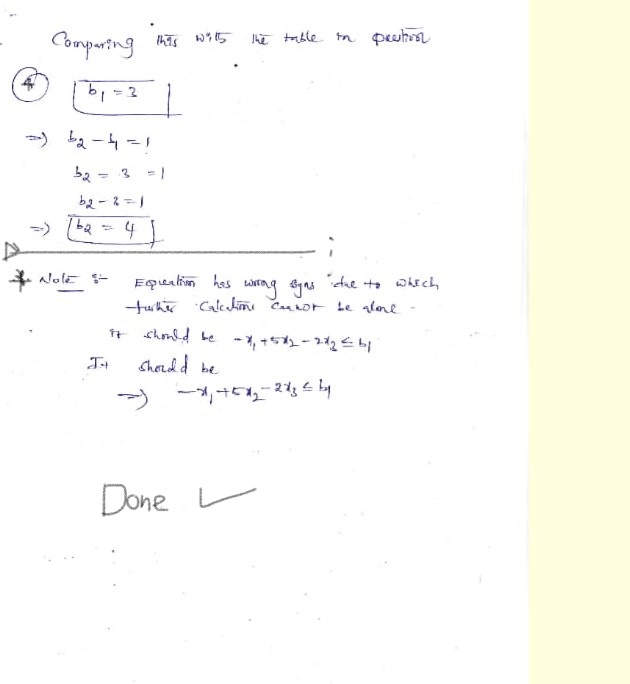 Comparing this with the table in question
4 b1 = 3
=> b2 - b1 = 1
b2 = 3 = 1
b2 - 3 = 1
=> b2 = 4
* Note :- Equation has wrong signs due to which
further calculations cannot be done.
it should be -x1 + 5x2 - 2x3 ≤ b1
It should be
=> -x1 + 5x2 - 2x3 ≤ b1
Done ✓